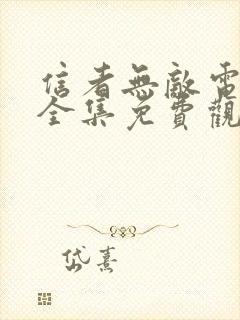 信者無敵電
全集免費觀
岱熹